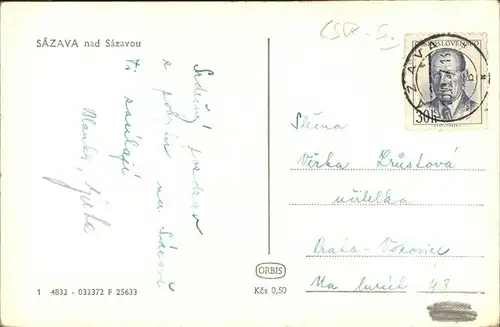 SÁZAVA nad Sázavou
ČSR - 5.
SÁZAVA
ČESKOSLOVENSKO
30h
Srdečný pozdrav
s pobytu na Sázavě
Ti zasílají
Blanka,
Slečna
Věrka Zrůstová
učitelka
Praha - Vokovice
Na 43
ORBIS
Kčs 0,50
1 4832 - 032372 F 25633